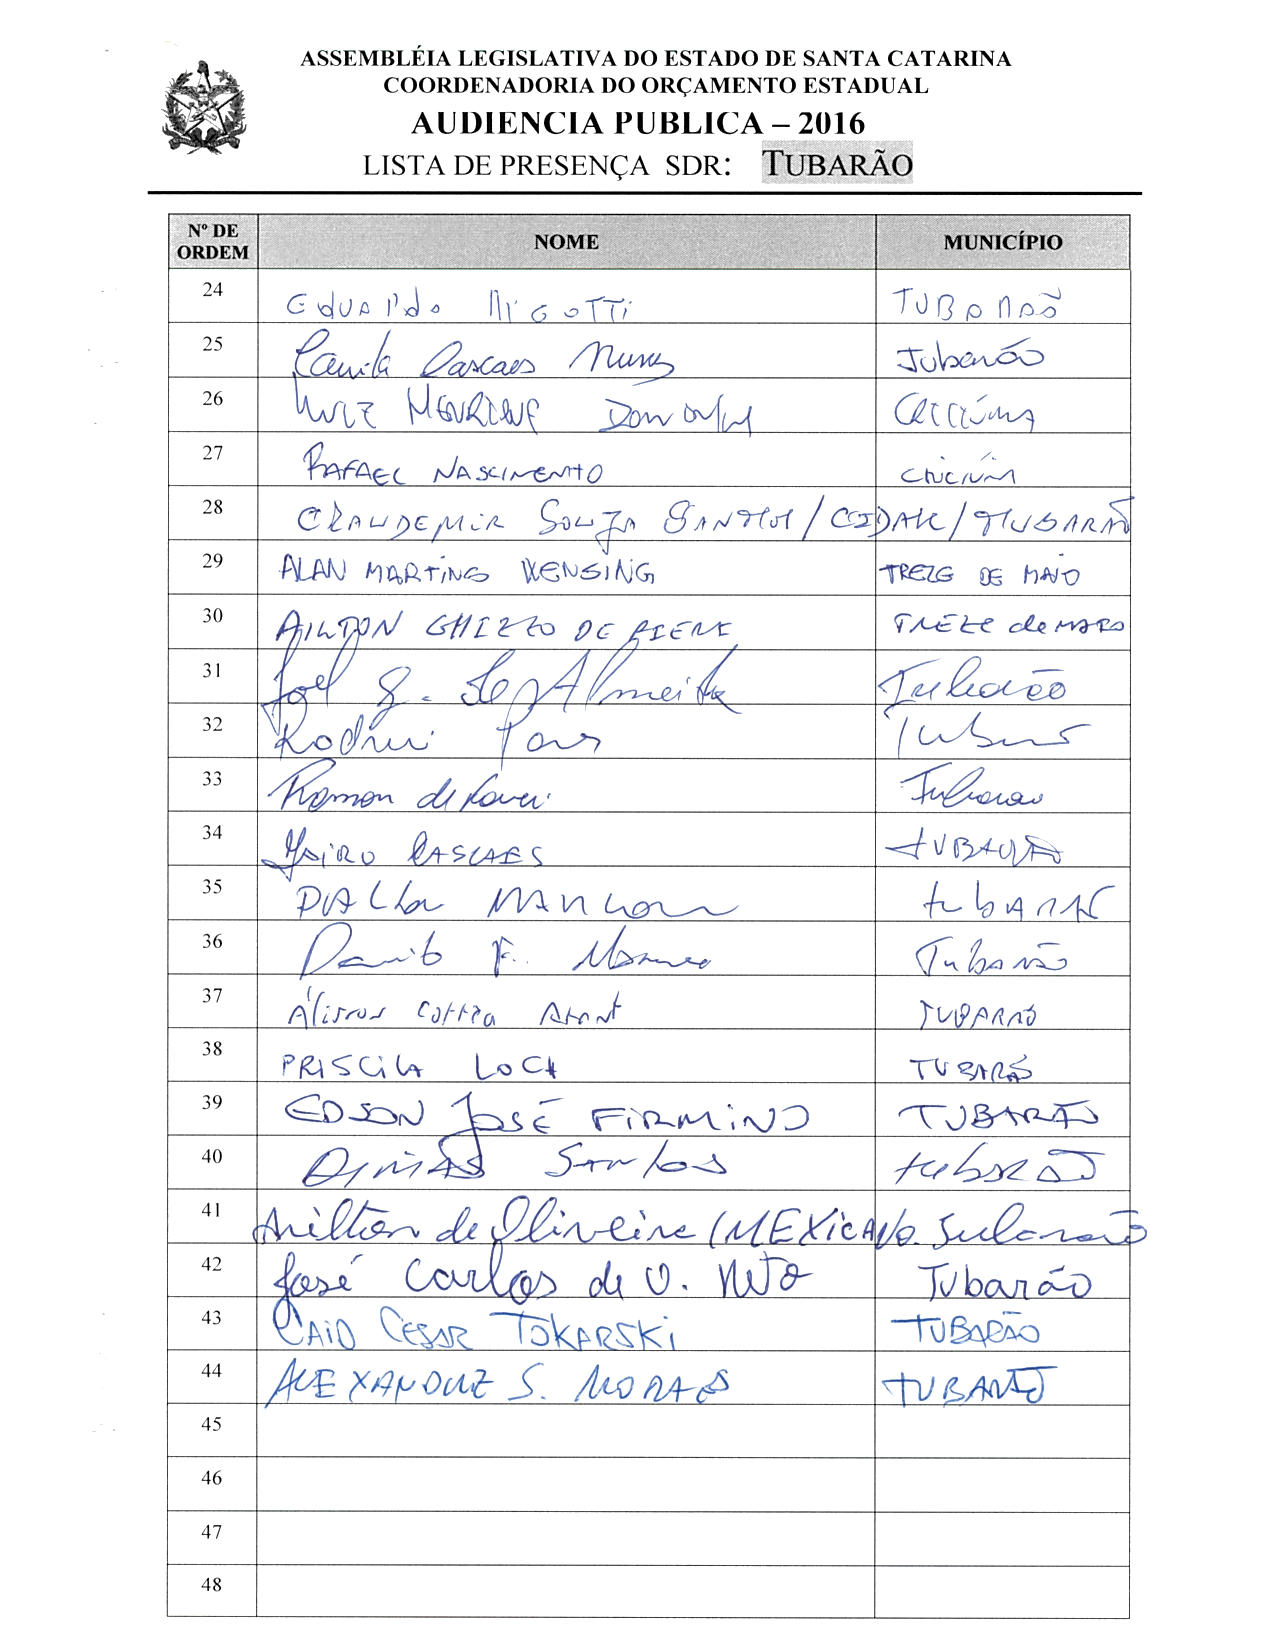 ASSEMBLÉIA LEGISLATIVA DO ESTADO DE SANTA CATARINA
COORDENADORIA DO ORÇAMENTO ESTADUAL
AUDIENCIA PUBLICA – 2016
LISTA DE PRESENÇA SDR: TUBARÃO
Nº DE ORDEM NOME MUNICÍPIO
24 Eduardo TUBARÃO
25 Camila Cascaes Nunes Tubarão
26 Luiz HENRIQUE CRICIÚMA
27 RAFAEL NASCIMENTO CRICIÚMA
28 CLAUDEMIR SOUZA SANTOS / CIDASC / TUBARÃO
29 ALAN MARTINS WENSING TREZE DE MAIO
30 AILTON GHIZZO DE PIERI TREZE de MAIO
31 Joel Almeida Tubarão
32 Tubarão
33 Ramon de Tubarão
34 JAIRO CASCAES TUBARÃO
35 TUBARÃO
36 F. Tubarão
37 Correa TUBARÃO
38 PRISCILA LOCH TUBARÃO
39 EDSON JOSÉ FIRMINO TUBARÃO
40 Santos tubarão
41 Amilton de Oliveira (MEXICANO. Tubarão
42 José Carlos de O. Neto Tubarão
43 CAIO CESAR TOKARSKI TUBARÃO
44 ALEXANDRE S. MORAES TUBARÃO
45
46
47
48